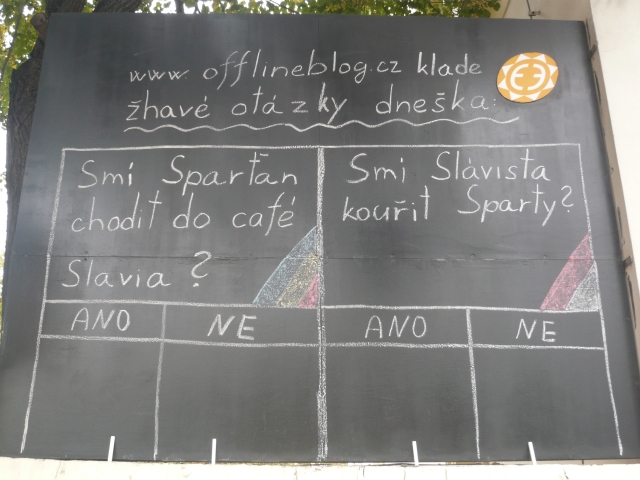 www. offlineblog.cz klade
žhavé otázky dneška:
Smí Sparťan
chodit do café
Slavia?
Smí Slávista
kouřit Sparty?
ANO NE
ANO NE